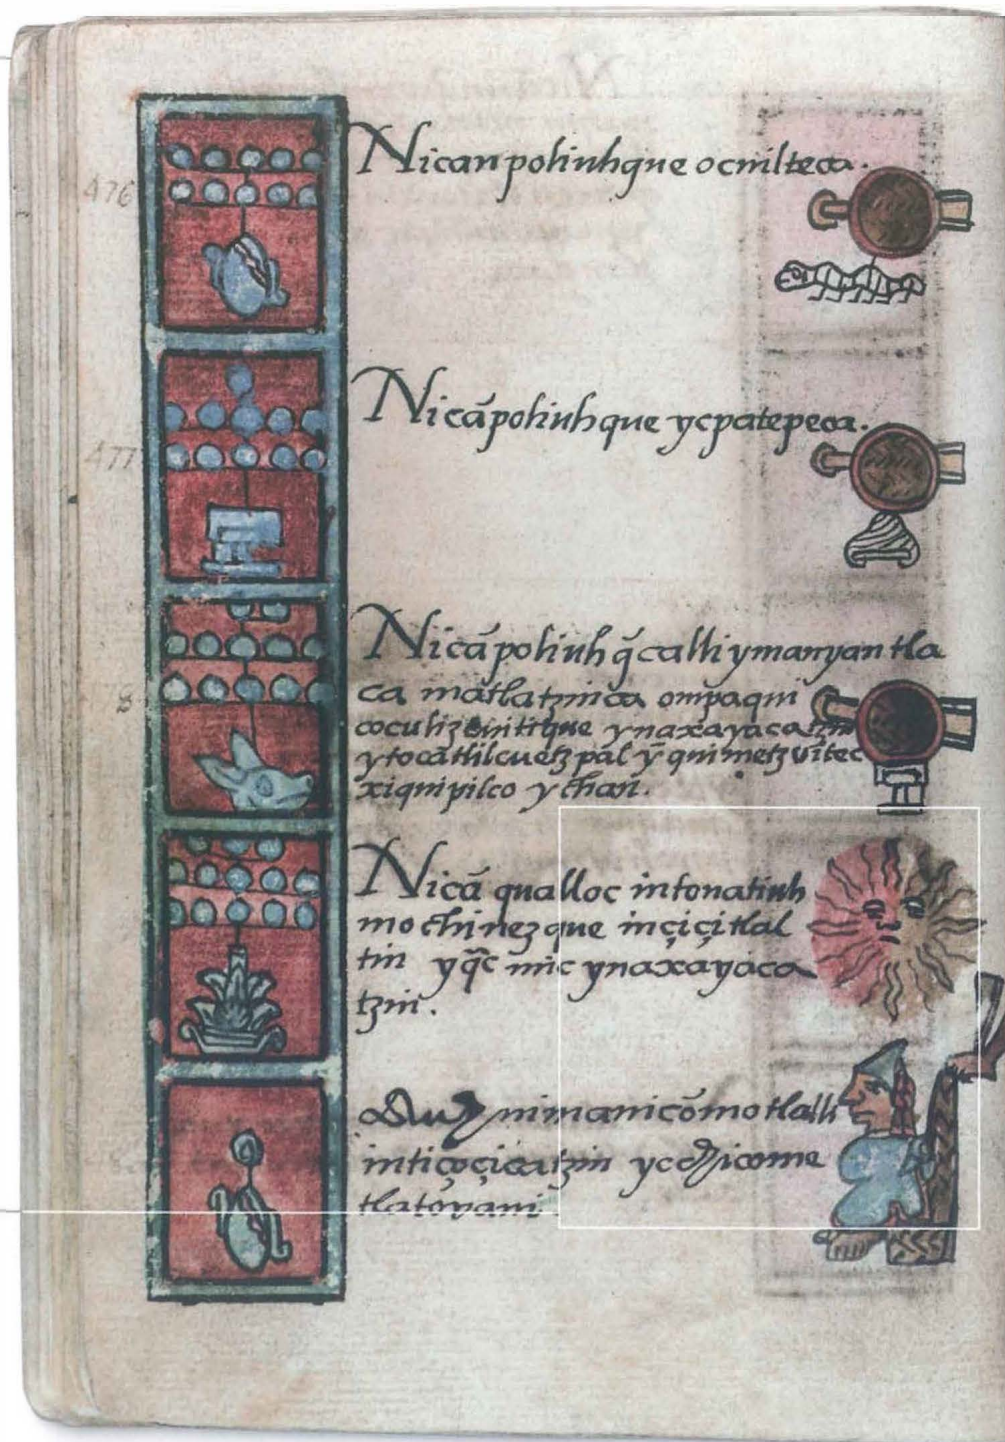 476
Nican poliuhque ocuilteca.
477
Nicā poliuhque ycpatepeca.
8
Nicā poliuhq̄ calli ymanyan tla
ca mātlatzinca ompa qui
coculiz ynaxayaca
ytocā tlilcuetzpāl ȳ quimetzvitec
xiquipilco ychan.
Nicā qualloc in tonatiuh
mochi nezque in çiçitlal
tin yq̄c mic ynaxayaca
tzin.
Auh nimanicōmotlalli
intiçoçicatzin yc chicome
tlatovani